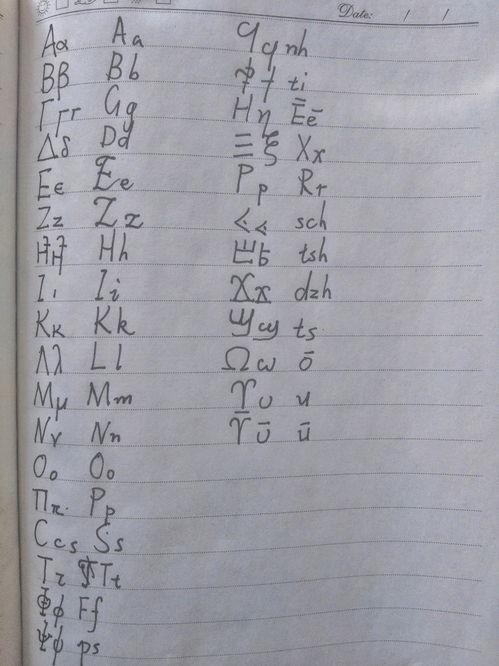 Date: / /
Αα Aa
Ββ Bb
Γγr Gg
Δδ Dd
Εε Ee
Ζz Zz
Hh
Ιι Ii
Κκ Kk
Λλ Ll
Μμ Mm
Νν Nn
Οο Oo
Ππ Pp
Ccs Ss
Ττ Tt
Φφ Ff
Ψψ ps
Ϥϥ nh
ti
Ηη Ēē
Ξξ Xx
Ρρ Rr
sch
tsh
Χx dzh
ts
Ωω ō
ϒυ u
ϒ̄ῡ ū